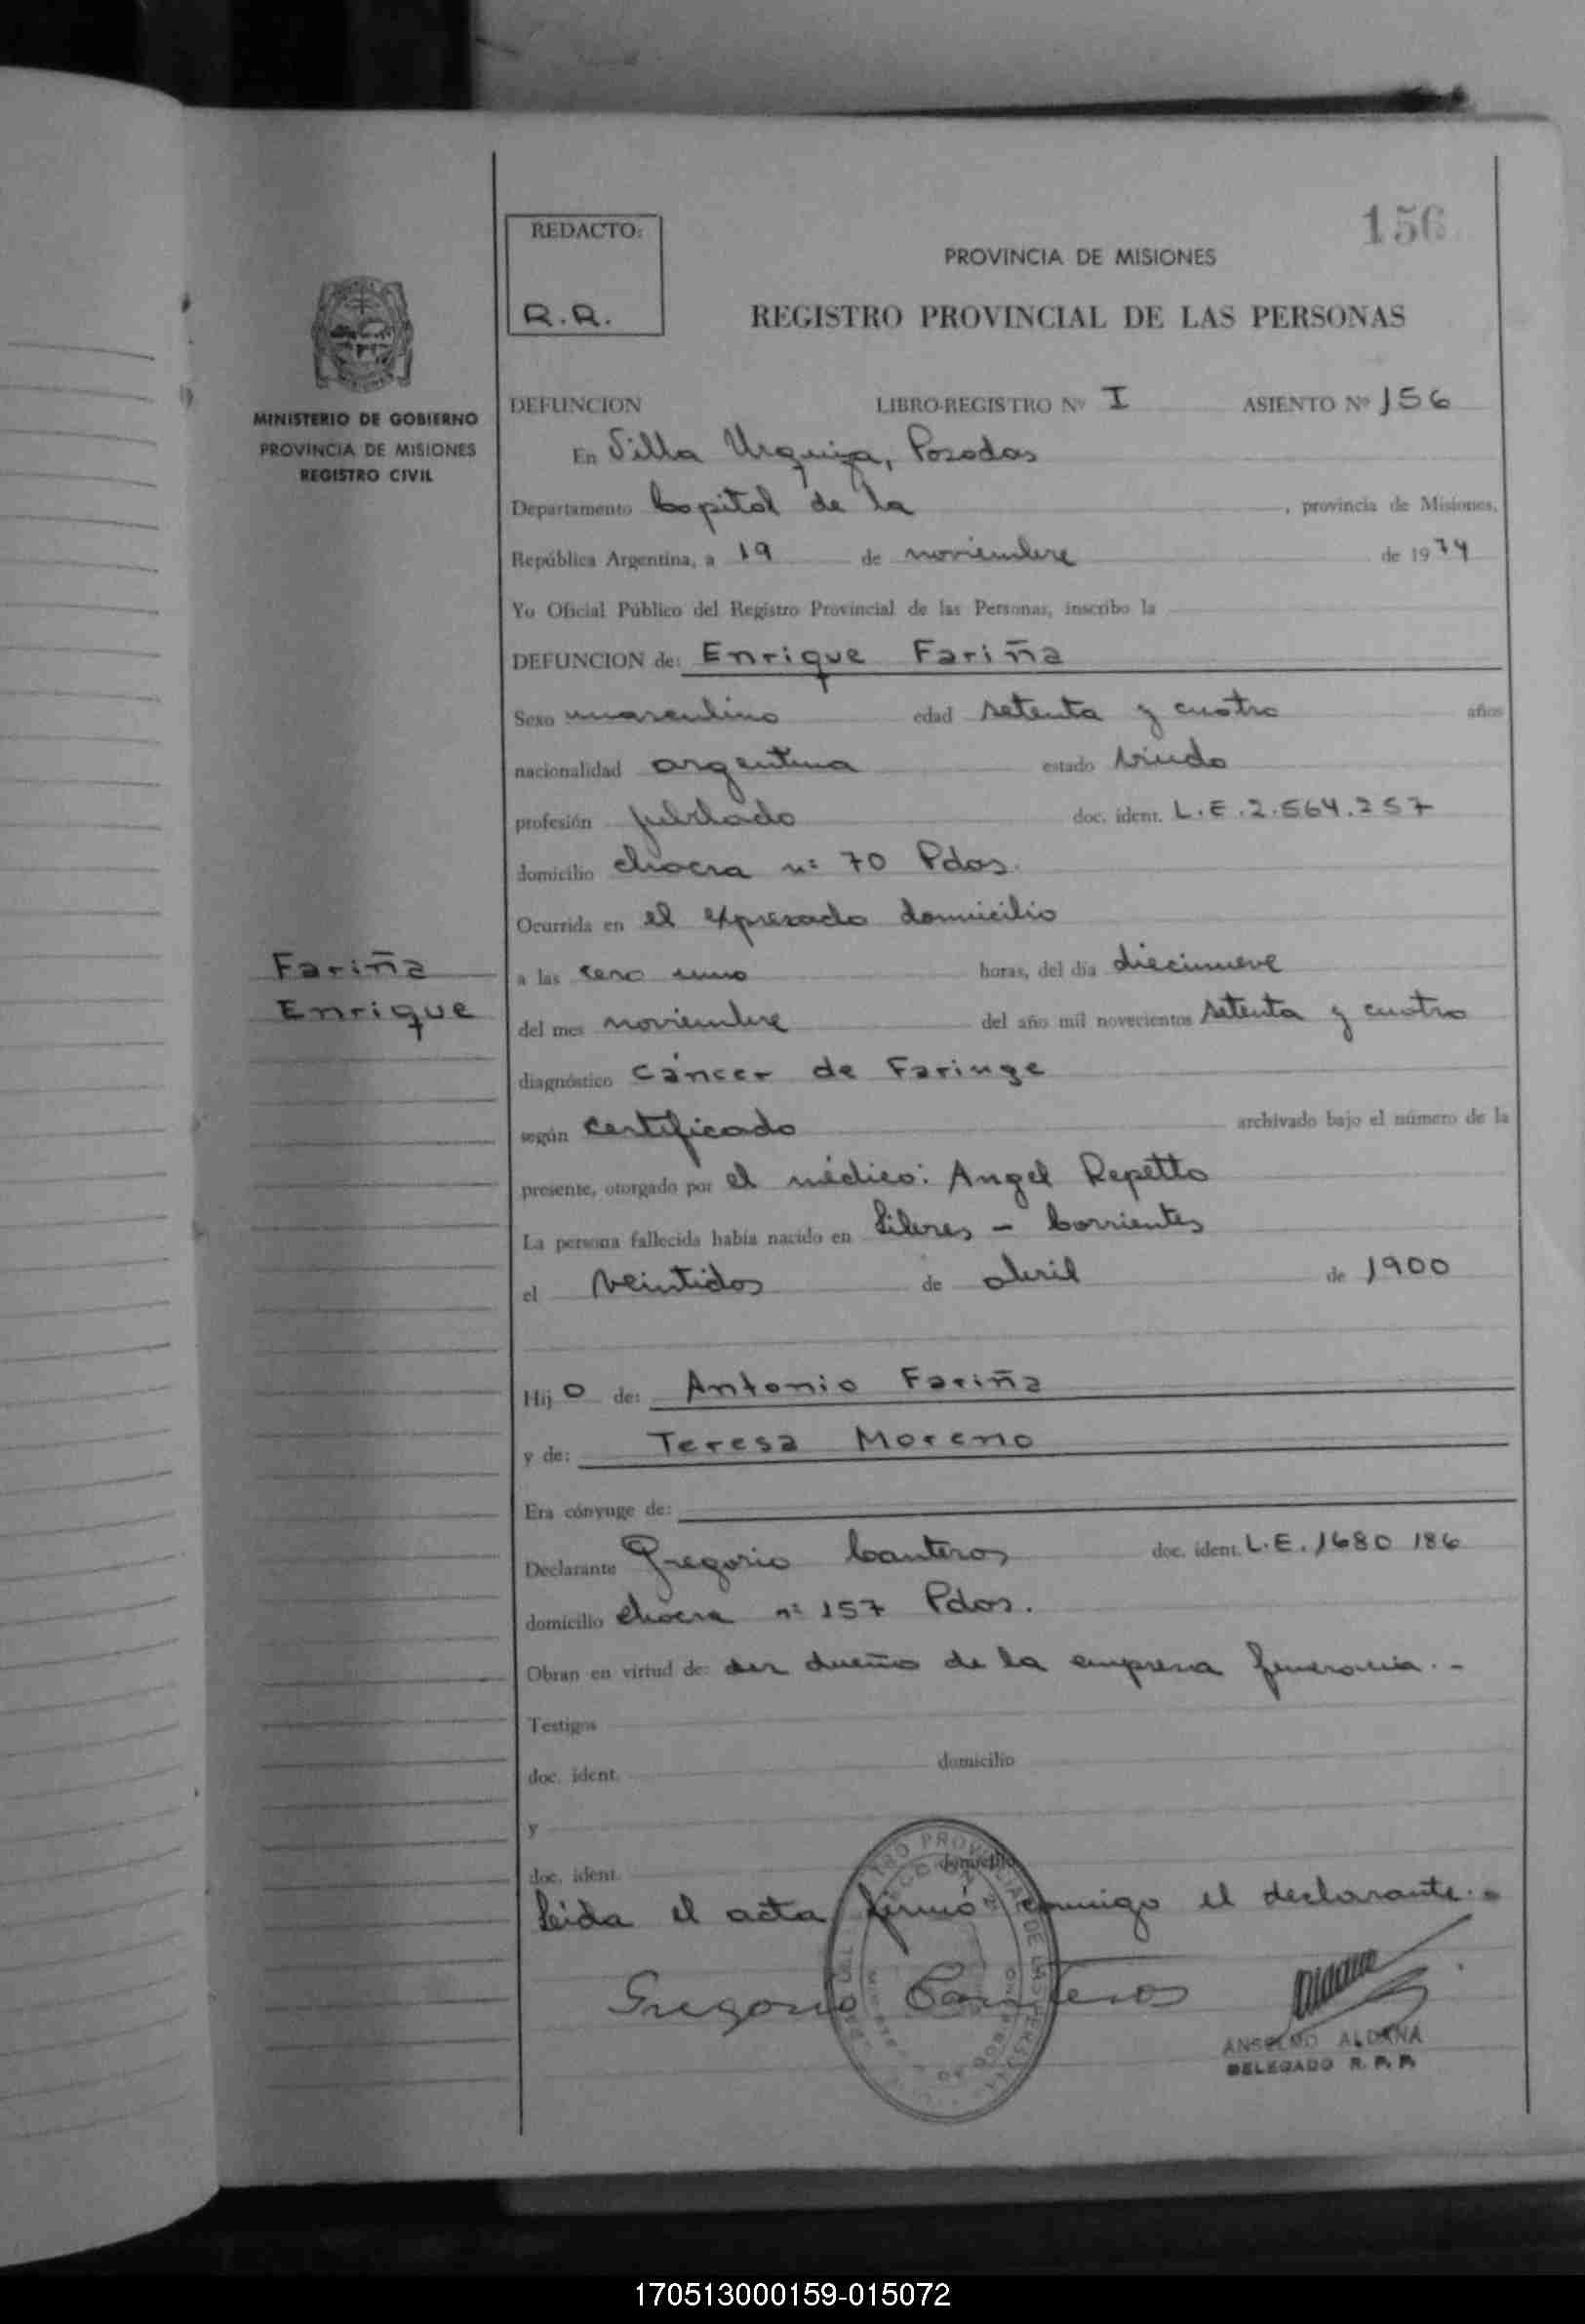 156
REDACTO:
R.R.
PROVINCIA DE MISIONES
REGISTRO PROVINCIAL DE LAS PERSONAS
MINISTERIO DE GOBIERNO
PROVINCIA DE MISIONES
REGISTRO CIVIL
DEFUNCION LIBRO-REGISTRO Nº I ASIENTO Nº 156
En Villa Urquiza, Posadas
Departamento Capital de la , provincia de Misiones,
República Argentina, a 19 de noviembre de 1974
Yo Oficial Público del Registro Provincial de las Personas, inscribo la
DEFUNCION de: Enrique Fariña
Sexo masculino edad setenta y cuatro años
nacionalidad argentina estado viudo
profesión jubilado doc. ident. L.E.2.564.257
domicilio chacra nº 70 Pdas.
Ocurrida en el expresado domicilio
Fariña
Enrique
a las cero uno horas, del día diecinueve
del mes noviembre del año mil novecientos setenta y cuatro
diagnóstico Cáncer de Faringe
según certificado archivado bajo el número de la
presente, otorgado por el médico: Angel Repetto
La persona fallecida había nacido en Libres - Corrientes
el veintidos de abril de 1900
Hij o de: Antonio Fariña
y de: Teresa Moreno
Era cónyuge de:
Declarante Gregorio Canteros doc. ident. L.E. 1680 186
domicilio chacra nº 157 Pdas.
Obran en virtud de: ser dueño de la empresa funeraria.-
Testigos
doc. ident. domicilio
y
doc. ident. domicilio
Leida el acta firmó conmigo el declarante.-
Gregorio Canteros
ANSELMO ALDANA
DELEGADO R. P. P.
170513000159-015072